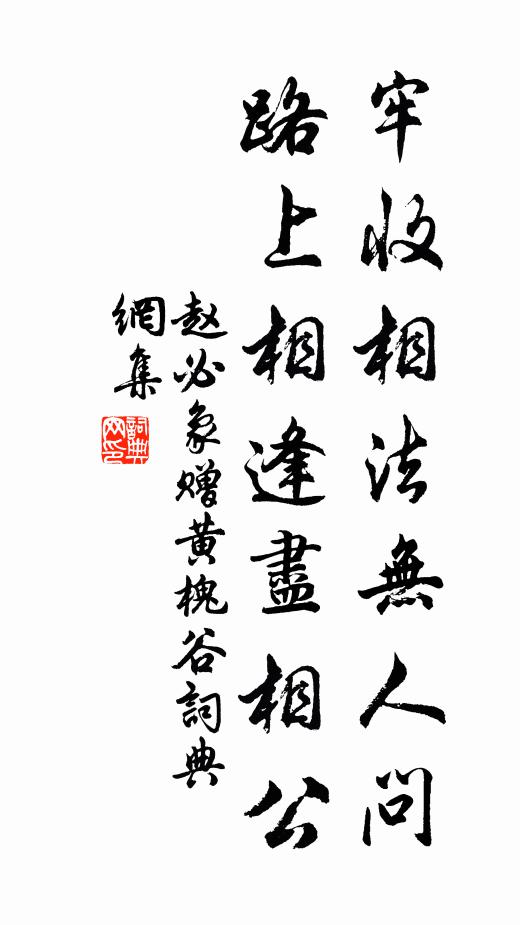 牢收相法無人問
路上相逢盡相公
赵必象赠黄槐谷詞典
網集
詞典
网印